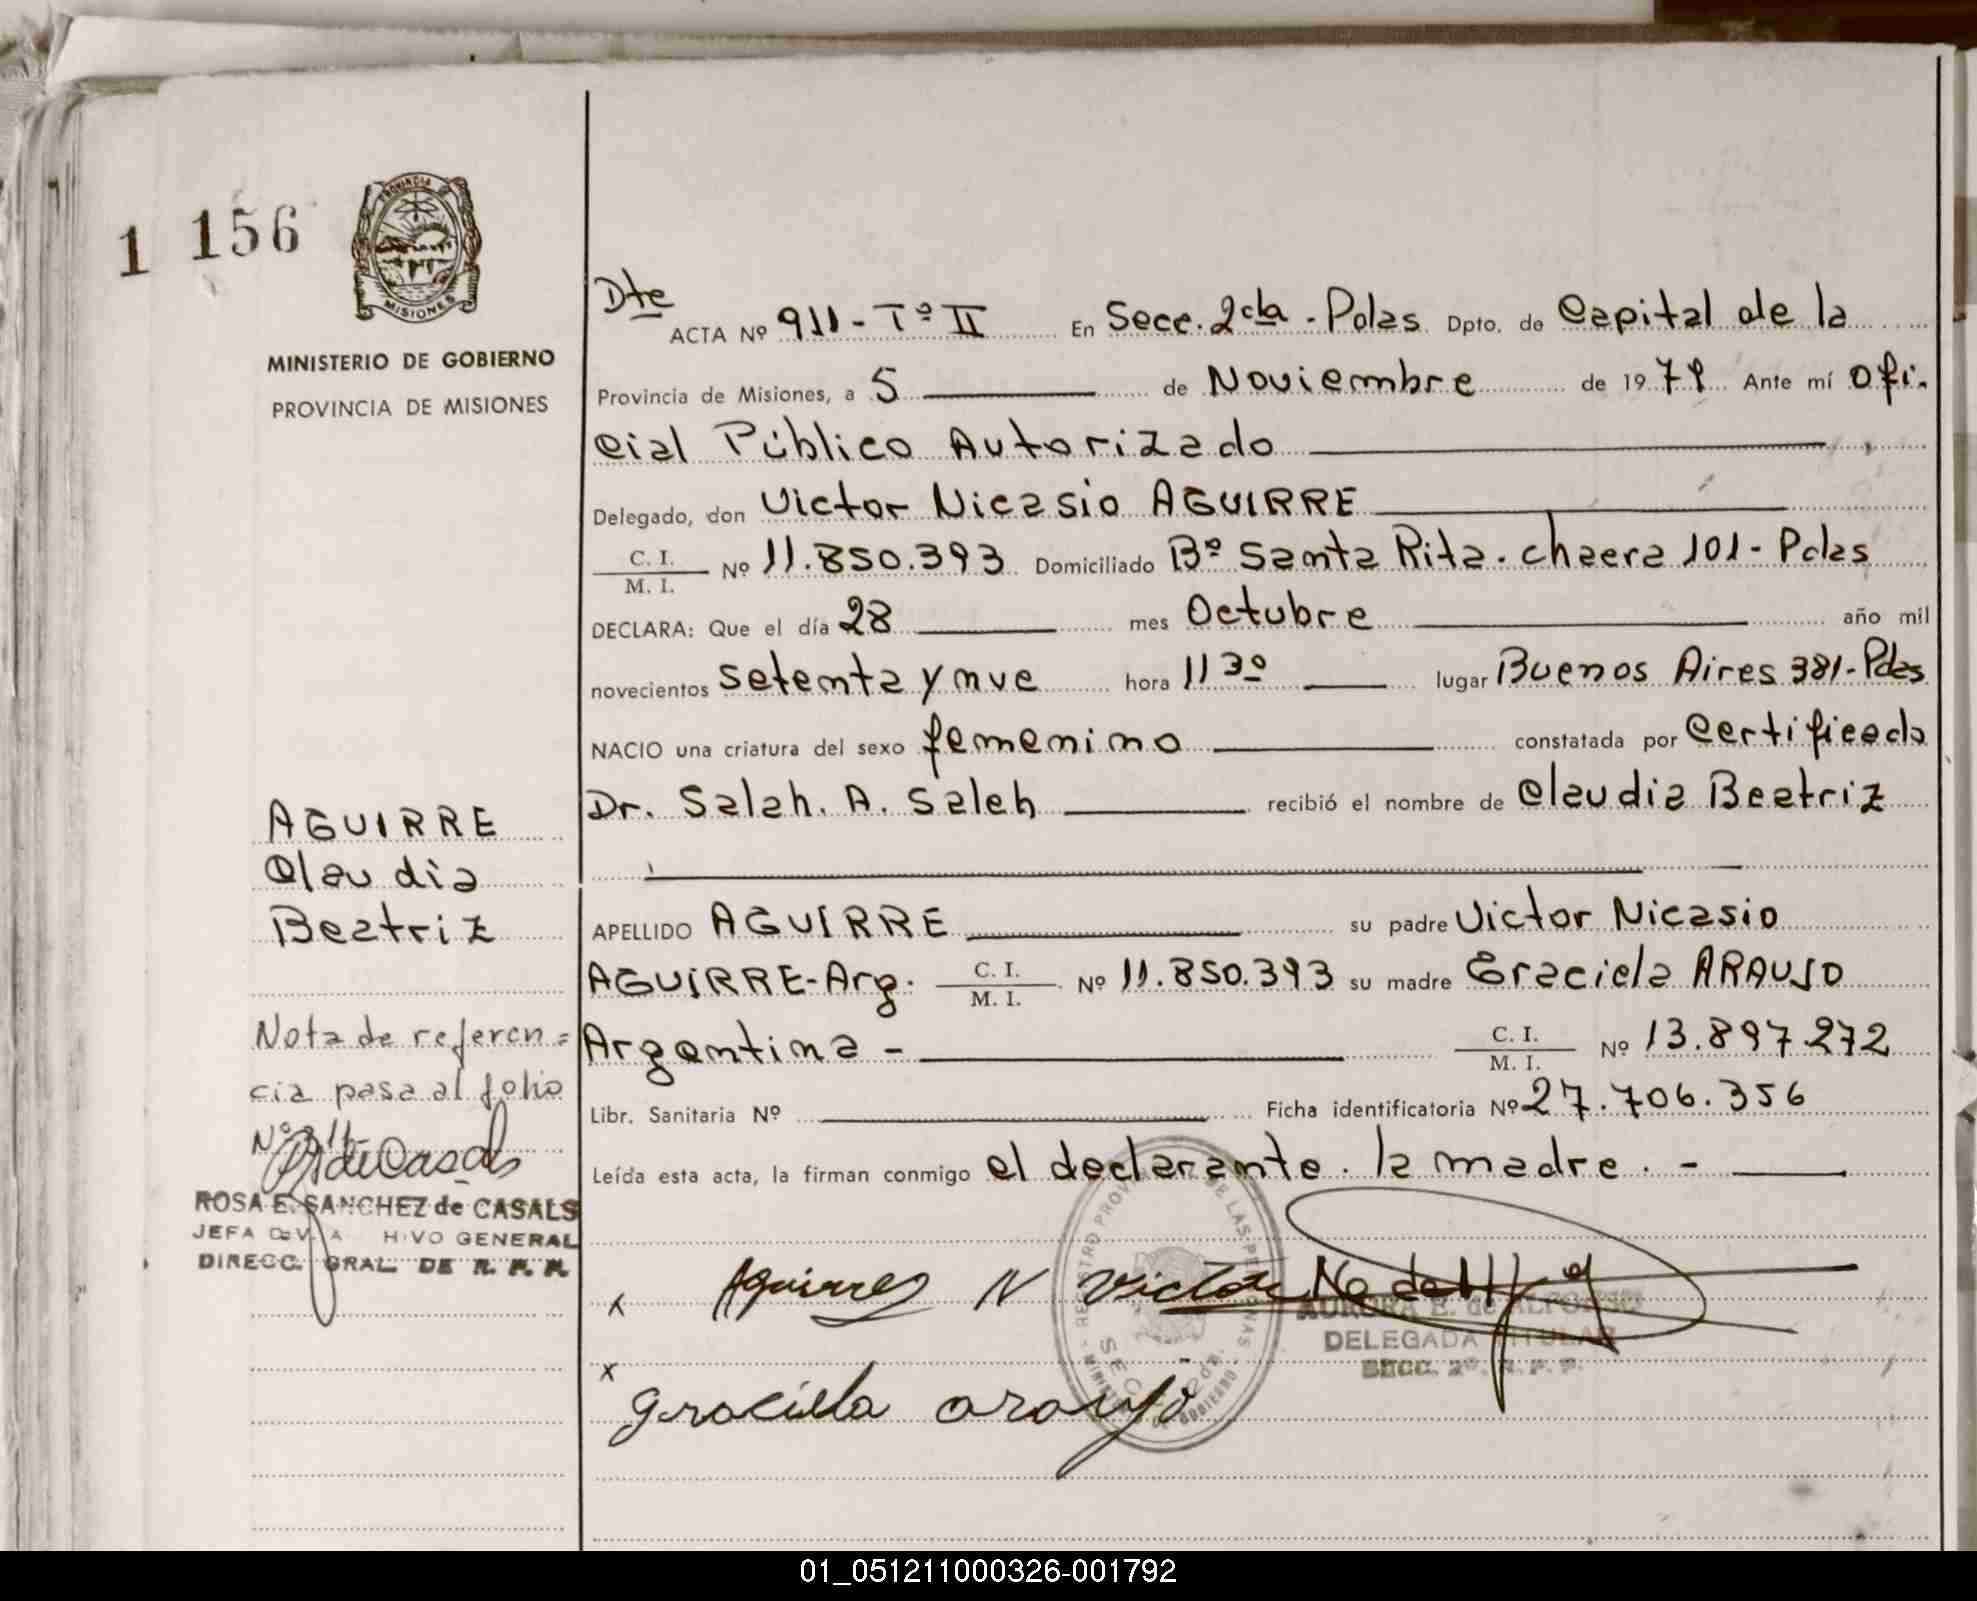 1 156
PROVINCIA DE
MISIONES
MINISTERIO DE GOBIERNO
PROVINCIA DE MISIONES
Dte
ACTA Nº 911 - Tº II En Secc. 2da - Pdas Dpto. de Capital de la
Provincia de Misiones, a 5 de Noviembre de 1979 Ante mí Ofi-
cial Público Autorizado
Delegado, don Victor Nicasio AGUIRRE
C. I.
M. I. Nº 11.850.393 Domiciliado Bº Santa Rita - chacra 101 - Pdas
DECLARA: Que el día 28 mes Octubre año mil
novecientos setenta y nuve hora 11 30 lugar Buenos Aires 381 - Pdas
NACIO una criatura del sexo femenino constatada por Certificado
Dr. Salah. A. Saleh recibió el nombre de Claudia Beatriz
AGUIRRE
Claudia
Beatriz
APELLIDO AGUIRRE su padre Victor Nicasio
AGUIRRE - Arg. C. I.
M. I. Nº 11.850.393 su madre Graciela ARAUJO
Argentina - C. I.
M. I. Nº 13.897.272
Libr. Sanitaria Nº Ficha identificatoria Nº 27.706.356
Leída esta acta, la firman conmigo el declarante. la madre. -
Nota de referen=
cia pasa al folio
Nº
ROSA E. SANCHEZ de CASALS
JEFA DIV. A HIVO GENERAL
DIRECC. GRAL. DE R. P. P.
x Aguirre N Victor
AURORA E. de ALFONSO
DELEGADA TITULAR
SECC. 2º. R. P. P.
x Graciela araujo
01_051211000326-001792